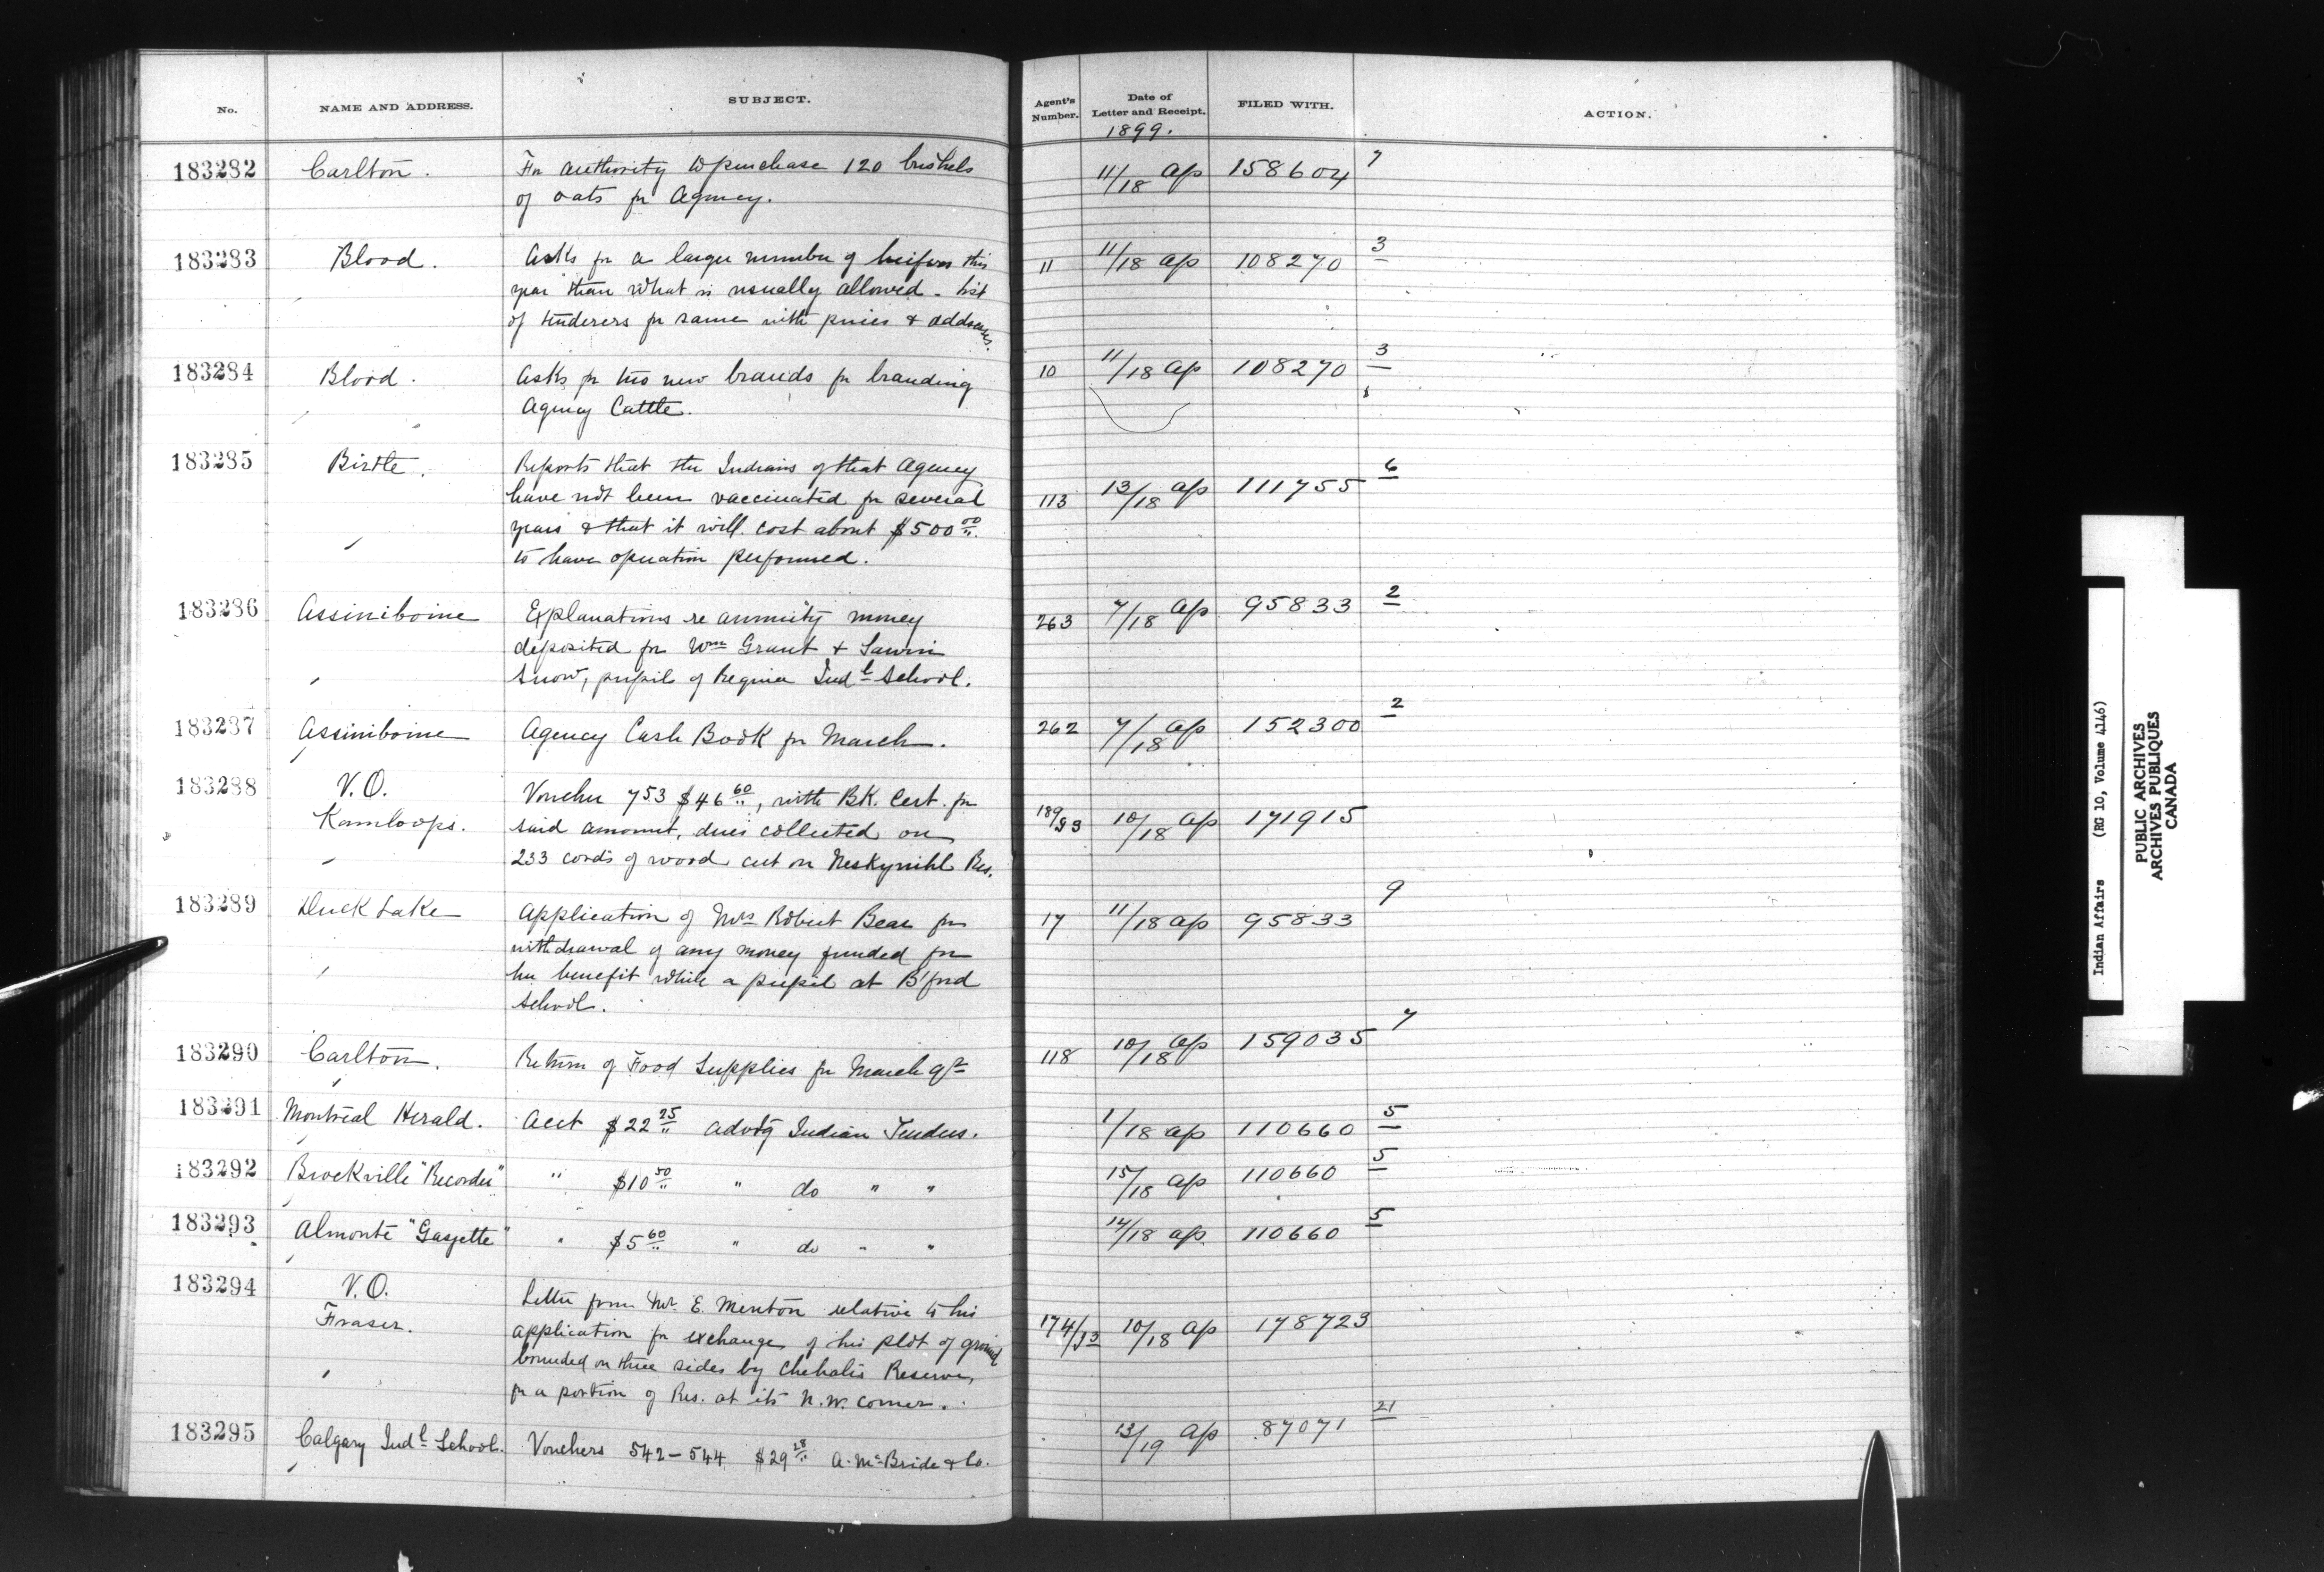 No. NAME AND ADDRESS. SUBJECT. Agent's Number. Date of Letter and Receipt. FILED WITH. ACTION.
1899.
183282 Carlton. For authority to purchase 120 bushels 11/18 Ap 158604 7
of oats for Agency.
183283 Blood. Asks for a larger number of heifers this 11 11/18 Ap 108270 3
year than what is usually allowed - list
of tenderers for same with prices & addresses.
183284 Blood. Asks for two new brands for branding 10 11/18 Ap 108270 3
Agency Cattle.
183285 Birtle. Reports that the Indians of that Agency 113 13/18 Ap 111755 6
have not been vaccinated for several
years & that it will cost about $500 00
to have operation performed.
183286 Assiniboine Explanations re annuity money 263 7/18 Ap 95833 2
deposited for Wm Grant &
Snow, pupils of Regina Indl School.
183287 Assiniboine Agency Cash Book for March. 262 7/18 Ap 152300 2
183288 V.O. Voucher 753 $46 60, with BK. Cert. for
Kamloops. said amount, dues collected on 10/18 Ap 171915
233 cords of wood cut on Neskynihl Res.
183289 Duck Lake Application of Mrs Robert Bear for 17 11/18 Ap 95833 9
withdrawal of any money funded for
her benefit while a pupil at B'ford
School.
183290 Carlton. Return of Food Supplies for March qr 118 10/18 Ap 159035 7
183291 Montreal Herald. Acct $22 25 advtg Indian Tenders. 1/18 Ap 110660 5
183292 Brockville "Recorder" " $10 50 " do " " 15/18 Ap 110660 5
183293 Almonte "Gazette" " $5 60 " do " " 14/18 Ap 110660 5
183294 V.O. Letter from Mr. E. Menton relative to his
Fraser. application for exchange of his plot of ground 174/93 10/18 Ap 178723
bounded on three sides by Chehalis Reserve,
for a portion of Res. at its N.W. corner.
183295 Calgary Indl School. Vouchers 542-544 $29 28 A. McBride & Co. 13/19 Ap 87071 21
Indian Affairs (RG 10, Volume 4146)
PUBLIC ARCHIVES
ARCHIVES PUBLIQUES
CANADA